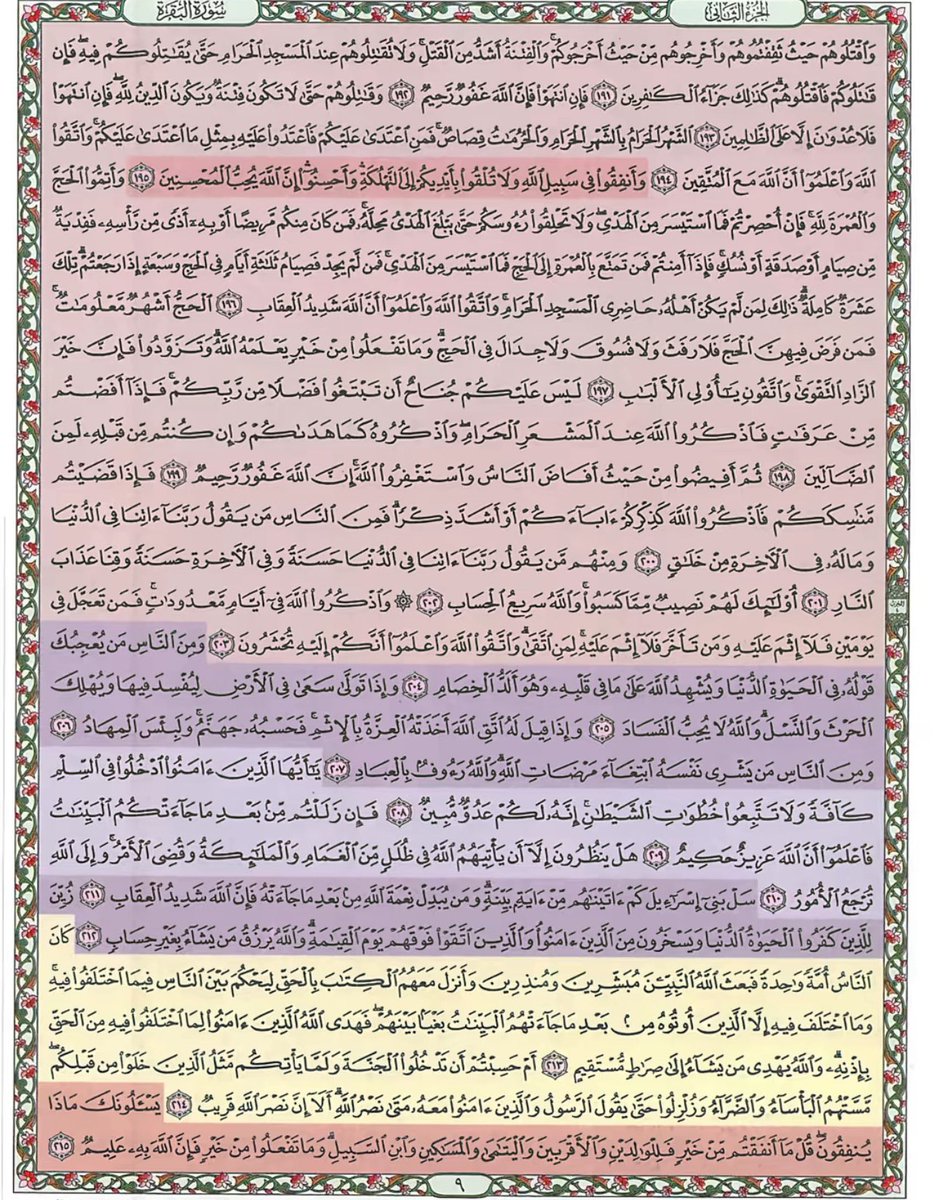 الجزء الثاني
سورة البقرة
وَٱقۡتُلُوهُمۡ حَيۡثُ ثَقِفۡتُمُوهُمۡ وَأَخۡرِجُوهُم مِّنۡ حَيۡثُ أَخۡرَجُوكُمۡۚ وَٱلۡفِتۡنَةُ أَشَدُّ مِنَ ٱلۡقَتۡلِۚ وَلَا تُقَٰتِلُوهُمۡ عِندَ ٱلۡمَسۡجِدِ ٱلۡحَرَامِ حَتَّىٰ يُقَٰتِلُوكُمۡ فِيهِۖ فَإِن
قَٰتَلُوكُمۡ فَٱقۡتُلُوهُمۡۗ كَذَٰلِكَ جَزَآءُ ٱلۡكَٰفِرِينَ ١٩١ فَإِنِ ٱنتَهَوۡاْ فَإِنَّ ٱللَّهَ غَفُورٞ رَّحِيمٞ ١٩٢ وَقَٰتِلُوهُمۡ حَتَّىٰ لَا تَكُونَ فِتۡنَةٞ وَيَكُونَ ٱلدِّينُ لِلَّهِۖ فَإِنِ ٱنتَهَوۡاْ
فَلَا عُدۡوَٰنَ إِلَّا عَلَى ٱلظَّٰلِمِينَ ١٩٣ ٱلشَّهۡرُ ٱلۡحَرَامُ بِٱلشَّهۡرِ ٱلۡحَرَامِ وَٱلۡحُرُمَٰتُ قِصَاصٞۚ فَمَنِ ٱعۡتَدَىٰ عَلَيۡكُمۡ فَٱعۡتَدُواْ عَلَيۡهِ بِمِثۡلِ مَا ٱعۡتَدَىٰ عَلَيۡكُمۡۚ وَٱتَّقُواْ
ٱللَّهَ وَٱعۡلَمُوٓاْ أَنَّ ٱللَّهَ مَعَ ٱلۡمُتَّقِينَ ١٩٤ وَأَنفِقُواْ فِي سَبِيلِ ٱللَّهِ وَلَا تُلۡقُواْ بِأَيۡدِيكُمۡ إِلَى ٱلتَّهۡلُكَةِ وَأَحۡسِنُوٓاْۚ إِنَّ ٱللَّهَ يُحِبُّ ٱلۡمُحۡسِنِينَ ١٩٥ وَأَتِمُّواْ ٱلۡحَجَّ
وَٱلۡعُمۡرَةَ لِلَّهِۚ فَإِنۡ أُحۡصِرۡتُمۡ فَمَا ٱسۡتَيۡسَرَ مِنَ ٱلۡهَدۡيِۖ وَلَا تَحۡلِقُواْ رُءُوسَكُمۡ حَتَّىٰ يَبۡلُغَ ٱلۡهَدۡيُ مَحِلَّهُۥۚ فَمَن كَانَ مِنكُم مَّرِيضًا أَوۡ بِهِۦٓ أَذٗى مِّن رَّأۡسِهِۦ فَفِدۡيَةٞ
مِّن صِيَامٍ أَوۡ صَدَقَةٍ أَوۡ نُسُكٖۚ فَإِذَآ أَمِنتُمۡ فَمَن تَمَتَّعَ بِٱلۡعُمۡرَةِ إِلَى ٱلۡحَجِّ فَمَا ٱسۡتَيۡسَرَ مِنَ ٱلۡهَدۡيِۚ فَمَن لَّمۡ يَجِدۡ فَصِيَامُ ثَلَٰثَةِ أَيَّامٖ فِي ٱلۡحَجِّ وَسَبۡعَةٍ إِذَا رَجَعۡتُمۡۗ تِلۡكَ
عَشَرَةٞ كَامِلَةٞۗ ذَٰلِكَ لِمَن لَّمۡ يَكُنۡ أَهۡلُهُۥ حَاضِرِي ٱلۡمَسۡجِدِ ٱلۡحَرَامِۚ وَٱتَّقُواْ ٱللَّهَ وَٱعۡلَمُوٓاْ أَنَّ ٱللَّهَ شَدِيدُ ٱلۡعِقَابِ ١٩٦ ٱلۡحَجُّ أَشۡهُرٞ مَّعۡلُومَٰتٞۚ
فَمَن فَرَضَ فِيهِنَّ ٱلۡحَجَّ فَلَا رَفَثَ وَلَا فُسُوقَ وَلَا جِدَالَ فِي ٱلۡحَجِّۗ وَمَا تَفۡعَلُواْ مِنۡ خَيۡرٖ يَعۡلَمۡهُ ٱللَّهُۗ وَتَزَوَّدُواْ فَإِنَّ خَيۡرَ
ٱلزَّادِ ٱلتَّقۡوَىٰۚ وَٱتَّقُونِ يَٰٓأُوْلِي ٱلۡأَلۡبَٰبِ ١٩٧ لَيۡسَ عَلَيۡكُمۡ جُنَاحٌ أَن تَبۡتَغُواْ فَضۡلٗا مِّن رَّبِّكُمۡۚ فَإِذَآ أَفَضۡتُم
مِّنۡ عَرَفَٰتٖ فَٱذۡكُرُواْ ٱللَّهَ عِندَ ٱلۡمَشۡعَرِ ٱلۡحَرَامِۖ وَٱذۡكُرُوهُ كَمَا هَدَىٰكُمۡ وَإِن كُنتُم مِّن قَبۡلِهِۦ لَمِنَ
ٱلضَّآلِّينَ ١٩٨ ثُمَّ أَفِيضُواْ مِنۡ حَيۡثُ أَفَاضَ ٱلنَّاسُ وَٱسۡتَغۡفِرُواْ ٱللَّهَۚ إِنَّ ٱللَّهَ غَفُورٞ رَّحِيمٞ ١٩٩ فَإِذَا قَضَيۡتُم
مَّنَٰسِكَكُمۡ فَٱذۡكُرُواْ ٱللَّهَ كَذِكۡرِكُمۡ ءَابَآءَكُمۡ أَوۡ أَشَدَّ ذِكۡرٗاۗ فَمِنَ ٱلنَّاسِ مَن يَقُولُ رَبَّنَآ ءَاتِنَا فِي ٱلدُّنۡيَا
وَمَا لَهُۥ فِي ٱلۡأٓخِرَةِ مِنۡ خَلَٰقٖ ٢٠٠ وَمِنۡهُم مَّن يَقُولُ رَبَّنَآ ءَاتِنَا فِي ٱلدُّنۡيَا حَسَنَةٗ وَفِي ٱلۡأٓخِرَةِ حَسَنَةٗ وَقِنَا عَذَابَ
ٱلنَّارِ ٢٠١ أُوْلَٰٓئِكَ لَهُمۡ نَصِيبٞ مِّمَّا كَسَبُواْۚ وَٱللَّهُ سَرِيعُ ٱلۡحِسَابِ ٢٠٢ ۞ وَٱذۡكُرُواْ ٱللَّهَ فِيٓ أَيَّامٖ مَّعۡدُودَٰتٖۚ فَمَن تَعَجَّلَ فِي
يَوۡمَيۡنِ فَلَآ إِثۡمَ عَلَيۡهِ وَمَن تَأَخَّرَ فَلَآ إِثۡمَ عَلَيۡهِۚ لِمَنِ ٱتَّقَىٰۗ وَٱتَّقُواْ ٱللَّهَ وَٱعۡلَمُوٓاْ أَنَّكُمۡ إِلَيۡهِ تُحۡشَرُونَ ٢٠٣ وَمِنَ ٱلنَّاسِ مَن يُعۡجِبُكَ
قَوۡلُهُۥ فِي ٱلۡحَيَوٰةِ ٱلدُّنۡيَا وَيُشۡهِدُ ٱللَّهَ عَلَىٰ مَا فِي قَلۡبِهِۦ وَهُوَ أَلَدُّ ٱلۡخِصَامِ ٢٠٤ وَإِذَا تَوَلَّىٰ سَعَىٰ فِي ٱلۡأَرۡضِ لِيُفۡسِدَ فِيهَا وَيُهۡلِكَ
ٱلۡحَرۡثَ وَٱلنَّسۡلَۚ وَٱللَّهُ لَا يُحِبُّ ٱلۡفَسَادَ ٢٠٥ وَإِذَا قِيلَ لَهُ ٱتَّقِ ٱللَّهَ أَخَذَتۡهُ ٱلۡعِزَّةُ بِٱلۡإِثۡمِۚ فَحَسۡبُهُۥ جَهَنَّمُۖ وَلَبِئۡسَ ٱلۡمِهَادُ ٢٠٦
وَمِنَ ٱلنَّاسِ مَن يَشۡرِي نَفۡسَهُ ٱبۡتِغَآءَ مَرۡضَاتِ ٱللَّهِۚ وَٱللَّهُ رَءُوفُۢ بِٱلۡعِبَادِ ٢٠٧ يَٰٓأَيُّهَا ٱلَّذِينَ ءَامَنُواْ ٱدۡخُلُواْ فِي ٱلسِّلۡمِ
كَآفَّةٗ وَلَا تَتَّبِعُواْ خُطُوَٰتِ ٱلشَّيۡطَٰنِۚ إِنَّهُۥ لَكُمۡ عَدُوّٞ مُّبِينٞ ٢٠٨ فَإِن زَلَلۡتُم مِّنۢ بَعۡدِ مَا جَآءَتۡكُمُ ٱلۡبَيِّنَٰتُ
فَٱعۡلَمُوٓاْ أَنَّ ٱللَّهَ عَزِيزٌ حَكِيمٌ ٢٠٩ هَلۡ يَنظُرُونَ إِلَّآ أَن يَأۡتِيَهُمُ ٱللَّهُ فِي ظُلَلٖ مِّنَ ٱلۡغَمَامِ وَٱلۡمَلَٰٓئِكَةُ وَقُضِيَ ٱلۡأَمۡرُۚ وَإِلَى ٱللَّهِ
تُرۡجَعُ ٱلۡأُمُورُ ٢١٠ سَلۡ بَنِيٓ إِسۡرَٰٓءِيلَ كَمۡ ءَاتَيۡنَٰهُم مِّنۡ ءَايَةِۭ بَيِّنَةٖۗ وَمَن يُبَدِّلۡ نِعۡمَةَ ٱللَّهِ مِنۢ بَعۡدِ مَا جَآءَتۡهُ فَإِنَّ ٱللَّهَ شَدِيدُ ٱلۡعِقَابِ ٢١١ زُيِّنَ
لِلَّذِينَ كَفَرُواْ ٱلۡحَيَوٰةُ ٱلدُّنۡيَا وَيَسۡخَرُونَ مِنَ ٱلَّذِينَ ءَامَنُواْۘ وَٱلَّذِينَ ٱتَّقَوۡاْ فَوۡقَهُمۡ يَوۡمَ ٱلۡقِيَٰمَةِۗ وَٱللَّهُ يَرۡزُقُ مَن يَشَآءُ بِغَيۡرِ حِسَابٖ ٢١٢ كَانَ
ٱلنَّاسُ أُمَّةٗ وَٰحِدَةٗ فَبَعَثَ ٱللَّهُ ٱلنَّبِيِّـۧنَ مُبَشِّرِينَ وَمُنذِرِينَ وَأَنزَلَ مَعَهُمُ ٱلۡكِتَٰبَ بِٱلۡحَقِّ لِيَحۡكُمَ بَيۡنَ ٱلنَّاسِ فِيمَا ٱخۡتَلَفُواْ فِيهِۚ
وَمَا ٱخۡتَلَفَ فِيهِ إِلَّا ٱلَّذِينَ أُوتُوهُ مِنۢ بَعۡدِ مَا جَآءَتۡهُمُ ٱلۡبَيِّنَٰتُ بَغۡيَۢا بَيۡنَهُمۡۖ فَهَدَى ٱللَّهُ ٱلَّذِينَ ءَامَنُواْ لِمَا ٱخۡتَلَفُواْ فِيهِ مِنَ ٱلۡحَقِّ
بِإِذۡنِهِۦۗ وَٱللَّهُ يَهۡدِي مَن يَشَآءُ إِلَىٰ صِرَٰطٖ مُّسۡتَقِيمٍ ٢١٣ أَمۡ حَسِبۡتُمۡ أَن تَدۡخُلُواْ ٱلۡجَنَّةَ وَلَمَّا يَأۡتِكُم مَّثَلُ ٱلَّذِينَ خَلَوۡاْ مِن قَبۡلِكُمۖ
مَّسَّتۡهُمُ ٱلۡبَأۡسَآءُ وَٱلضَّرَّآءُ وَزُلۡزِلُواْ حَتَّىٰ يَقُولَ ٱلرَّسُولُ وَٱلَّذِينَ ءَامَنُواْ مَعَهُۥ مَتَىٰ نَصۡرُ ٱللَّهِۗ أَلَآ إِنَّ نَصۡرَ ٱللَّهِ قَرِيبٞ ٢١٤ يَسۡـَٔلُونَكَ مَاذَا
يُنفِقُونَۖ قُلۡ مَآ أَنفَقۡتُم مِّنۡ خَيۡرٖ فَلِلۡوَٰلِدَيۡنِ وَٱلۡأَقۡرَبِينَ وَٱلۡيَتَٰمَىٰ وَٱلۡمَسَٰكِينِ وَٱبۡنِ ٱلسَّبِيلِۗ وَمَا تَفۡعَلُواْ مِنۡ خَيۡرٖ فَإِنَّ ٱللَّهَ بِهِۦ عَلِيمٞ ٢١٥
٩